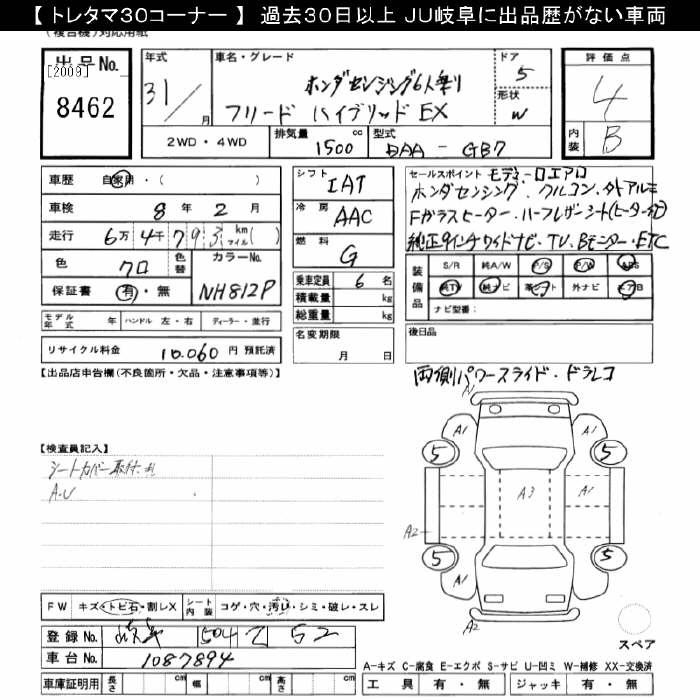 【 トレタマ30コーナー 】 過去30日以上 JU岐阜に出品歴がない車両
(複合機)対応用紙
出品No. [2009] 8462
年式 31/ 月
車名・グレード ホンダセンシング6人乗り
フリード ハイブリッド EX
ドア 5
形状 W
評価点 4
内装 B
2WD・4WD
排気量 1500 cc
型式 DAA-GB7
車歴 自家用・( )
車検 8 年 2 月
走行 6万4千793 km マイル( )
色 クロ 色替 カラーNo. NH812P
保証書 有・無
モデル年式 年 ハンドル 左・右 ディーラー・並行
リサイクル料金 10,060 円 預託済
シフト IAT
冷房 AAC
燃料 G
乗車定員 6 名
積載量 kg
総重量 kg
名変期限 月 日
セールスポイント モデューロエアロ
ホンダセンシング、クルコン、外アルミ
Fガラスヒーター・ハーフレザーシート(ヒーター付)
純正9インチワイドナビ・TV、Bモニター・ETC
装備品 S/R 純A/W P/S P/W ABS
純TV 純ナビ 革シート 外ナビ エアB
ナビ型番:
後日品
両側パワースライド・ドラレコ
【出品店申告欄(不良箇所・欠品・注意事項等)】
【検査員記入】
シートカバー取付、札
A.U
A1
A1
A1
5
5
A3
A1
A2
5
5
A1
A2
スペア
FW キズ・トビ石・割レX シート内装 コゲ・穴・汚レ・シミ・破レ・スレ
登録No. 岐阜 504 Z 52
車台No. 1087894
車庫証明用 長さ cm 幅 cm 高さ cm
A-キズ C-腐食 E-エクボ S-サビ U-凹ミ W-補修 XX-交換済
工具 有・無 ジャッキ 有・無